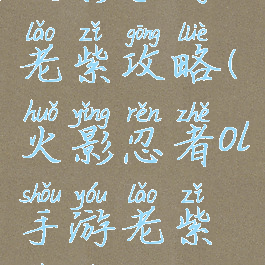 lǎo zǐ gōng lüè
老紫攻略(
huǒ yǐng rěn zhě
火影忍者ol
shǒu yóu lǎo zǐ
手游老紫